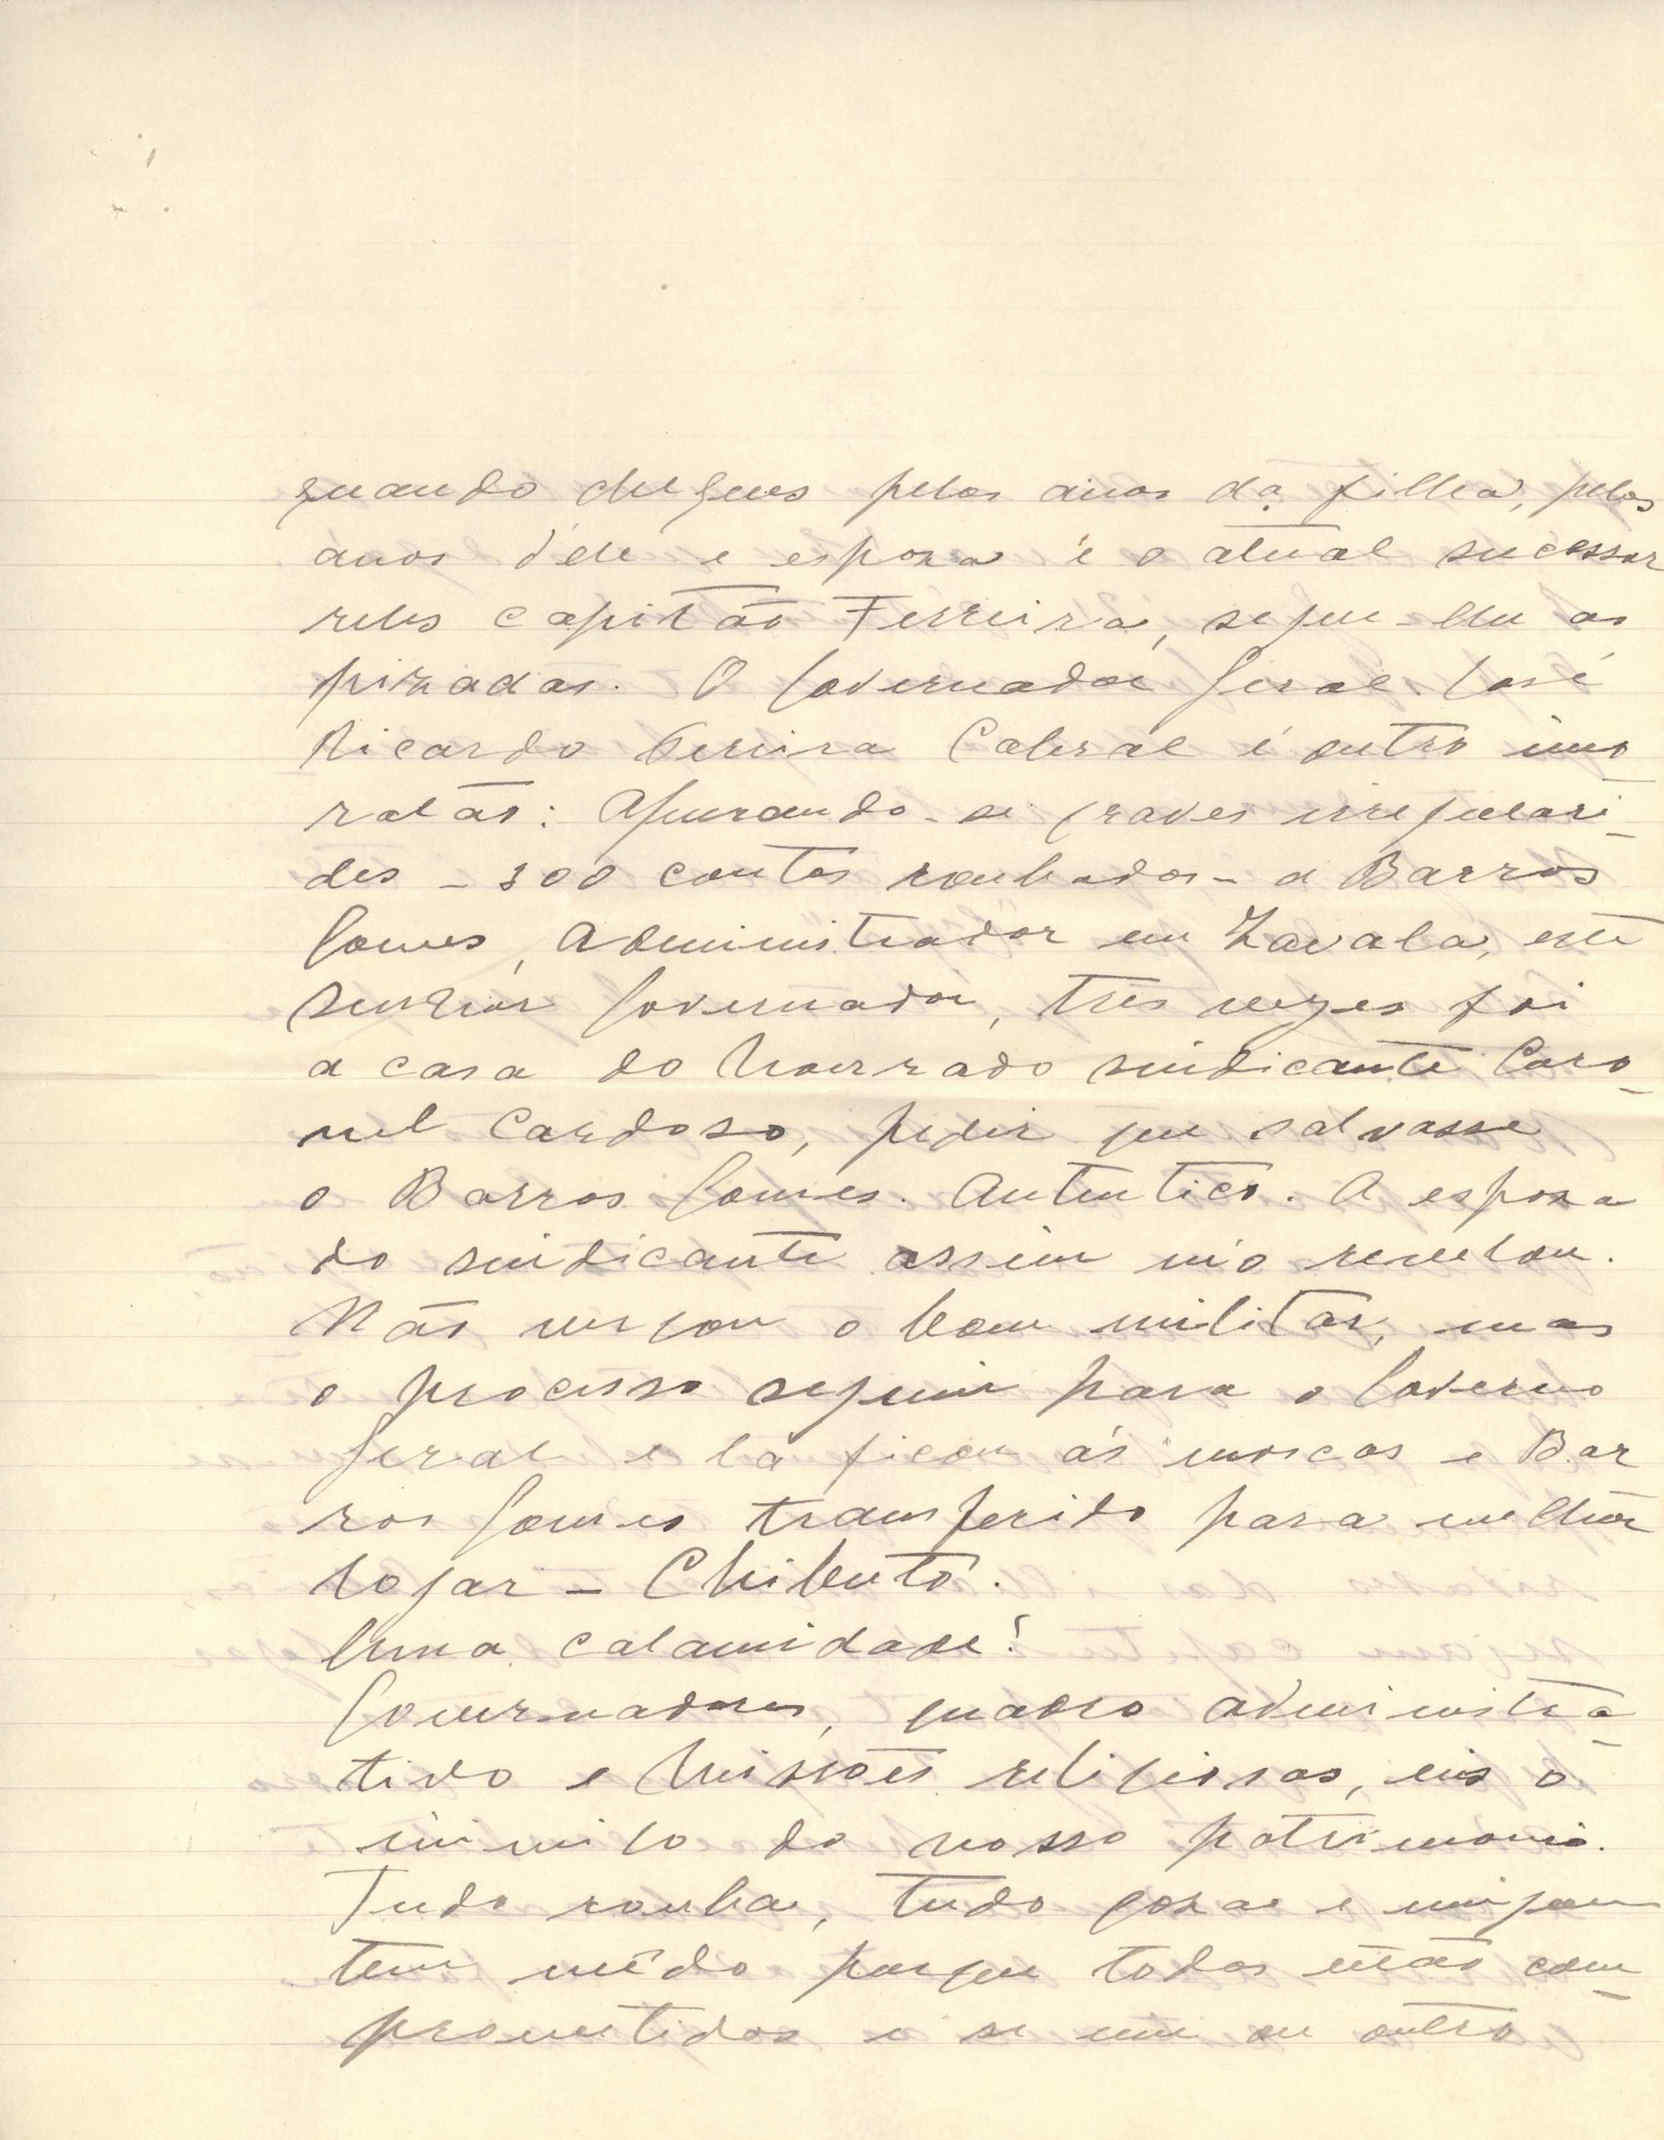 quando chegues pelos anos da filha, pelos
anos d'ele e espoza e o atual sucessor
reles capitão Ferreira, segue-lhe as
pizadas. O Governador Geral José
Ricardo Pereira Cabral é outro imo
ralão: Apurando-se graves irregulari-
des - 300 contos roubados - a Barros
Gomes, Administrador em Zavala, este
senhor Governador, três vezes foi
a casa do honrado sindicante Coro-
nel Cardoso, pedir que salvasse
o Barros Gomes. Autentico. A espoza
do sindicante assim m'o revelou.
Não vergou o bom militar, mas
o processo seguiu para o Governo
Geral e lá ficou ás moscas e Bar
ros Gomes transferido para melhor
logar - Chibuto.
Uma calamidade!
Governadores, quadro administra-
tivo e Missões religiosas, eis o
inimigo do nosso patrimonio.
Tudo rouba, tudo goza e ninguem
tem mêdo porque todos estão com-
prometidos e se um ou outro